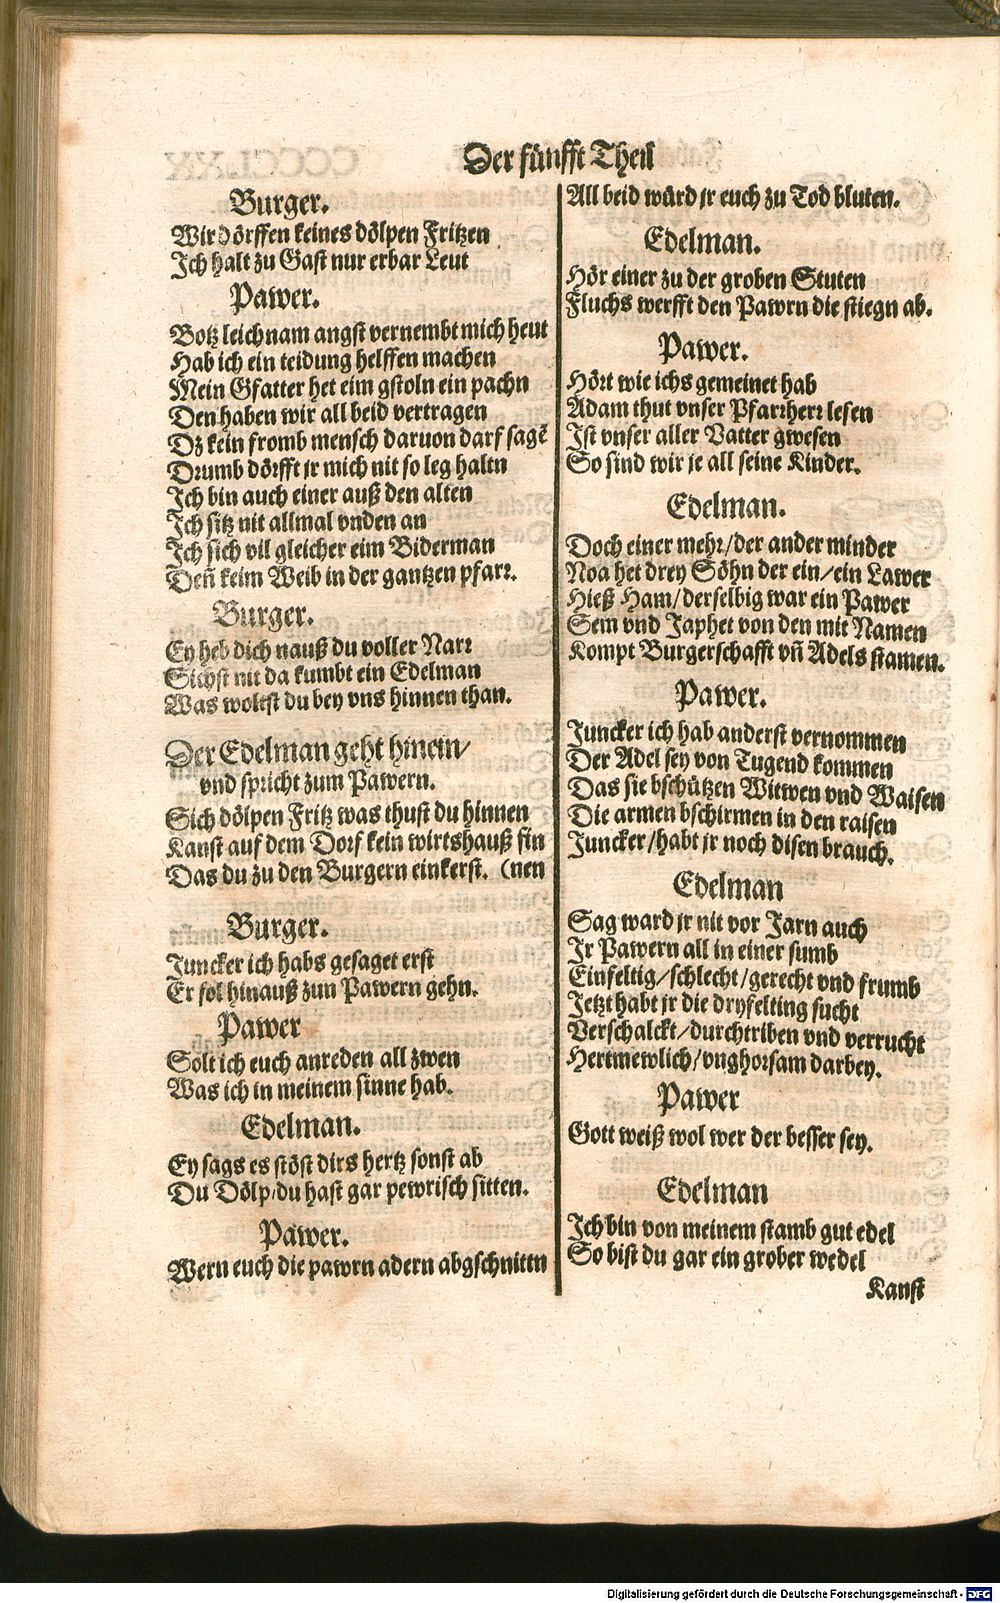 Der fünfft Theil
Burger.
Wir dörffen keines dölpen Fritzen
Ich halt zu Gast nur erbar Leut
Pawer.
Botz leichnam angst vernembt mich heut
Hab ich ein teidung helffen machen
Mein Gfatter het eim gstoln ein pachn
Den haben wir all beid vertragen
Dz kein fromb mensch daruon darf sagē
Drumb dörfft jr mich nit so leg haltn
Ich bin auch einer auß den alten
Ich sitz nit allmal vnden an
Ich sich vil gleicher eim Biderman
Deñ keim Weib in der gantzen pfarr.
Burger.
Ey heb dich nauß du voller Narr
Sichst nit da kumbt ein Edelman
Was woltst du bey vns hinnen than.
Der Edelman geht hinein/
vnd spricht zum Pawern.
Sich dölpen Fritz was thust du hinnen
Kanst auf dem Dorf kein wirtshauß fin
Das du zu den Burgern einkerst. (nen
Burger.
Juncker ich habs gesaget erst
Er sol hinauß zun Pawern gehn.
Pawer
Solt ich euch anreden all zwen
Was ich in meinem sinne hab.
Edelman.
Ey sags es stöst dirs hertz sonst ab
Du Dölp/du hast gar pewrisch sitten.
Pawer.
Wern euch die pawrn adern abgschnittn
All beid würd jr euch zu Tod bluten.
Edelman.
Hör einer zu der groben Stuten
Fluchs werfft den Pawrn die stiegn ab.
Pawer.
Hört wie ichs gemeinet hab
Adam thut vnser Pfarrherr lesen
Ist vnser aller Vatter gwesen
So sind wir je all seine Kinder.
Edelman.
Doch einer mehr/der ander minder
Noa het drey Söhn der ein/ein Lawer
Hieß Ham/derselbig war ein Pawer
Sem vnd Japhet von den mit Namen
Kompt Burgerschafft vñ Adels stamen.
Pawer.
Juncker ich hab anderst vernommen
Der Adel sey von Tugend kommen
Das sie bschützen Witwen vnd Waisen
Die armen bschirmen in den raisen
Juncker/habt jr noch disen brauch.
Edelman
Sag ward jr nit vor Jarn auch
Jr Pawern all in einer sumb
Einfeltig/schlecht/gerecht vnd frumb
Jetzt habt jr die dryfelting sucht
Verschalckt/durchtriben vnd verrucht
Hertmewlich/vnghorsam darbey.
Pawer
Gott weiß wol wer der besser sey.
Edelman
Ich bin von meinem stamb gut edel
So bist du gar ein grober wedel
Kanst
Digitalisierung gefördert durch die Deutsche Forschungsgemeinschaft - DFG